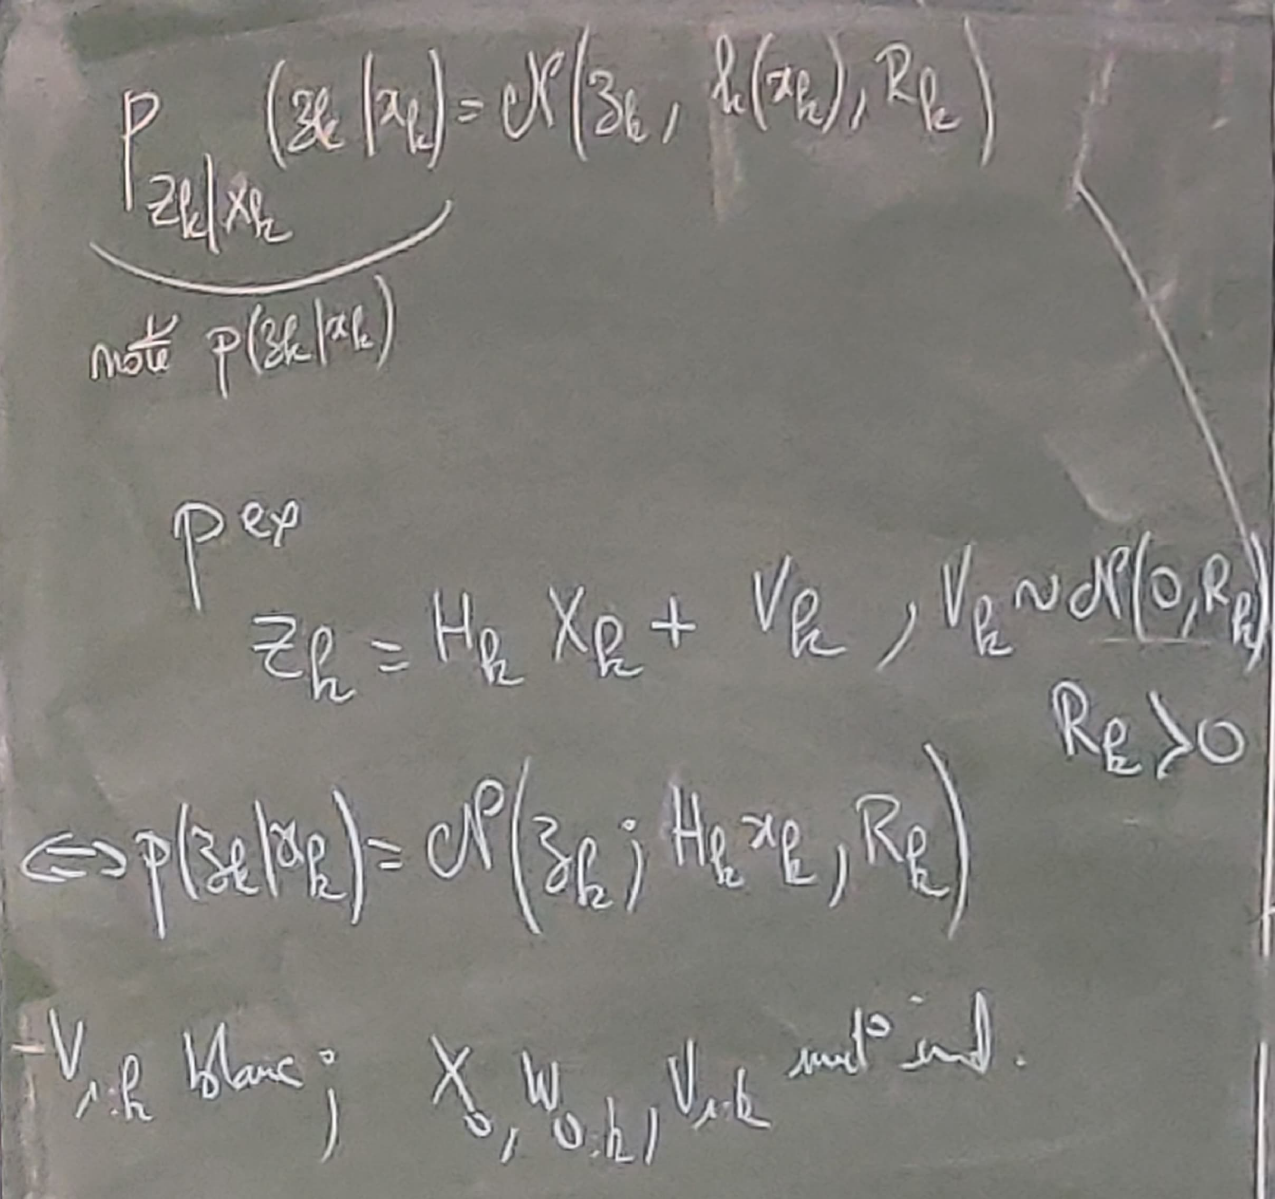 p_{Z_k|X_k}(z_k|x_k) = 𝒩(z_k, h(x_k), R_k)
noté p(z_k|x_k)
p ex
Z_k = H_k X_k + V_k , V_k ~ 𝒩(0, R_k)
R_k > 0
⇔ p(z_k|x_k) = 𝒩(z_k ; H_k x_k, R_k)
- V_{1:k} blanc ; X_0, W_{0:k}, V_{1:k} mutᵗ ind.